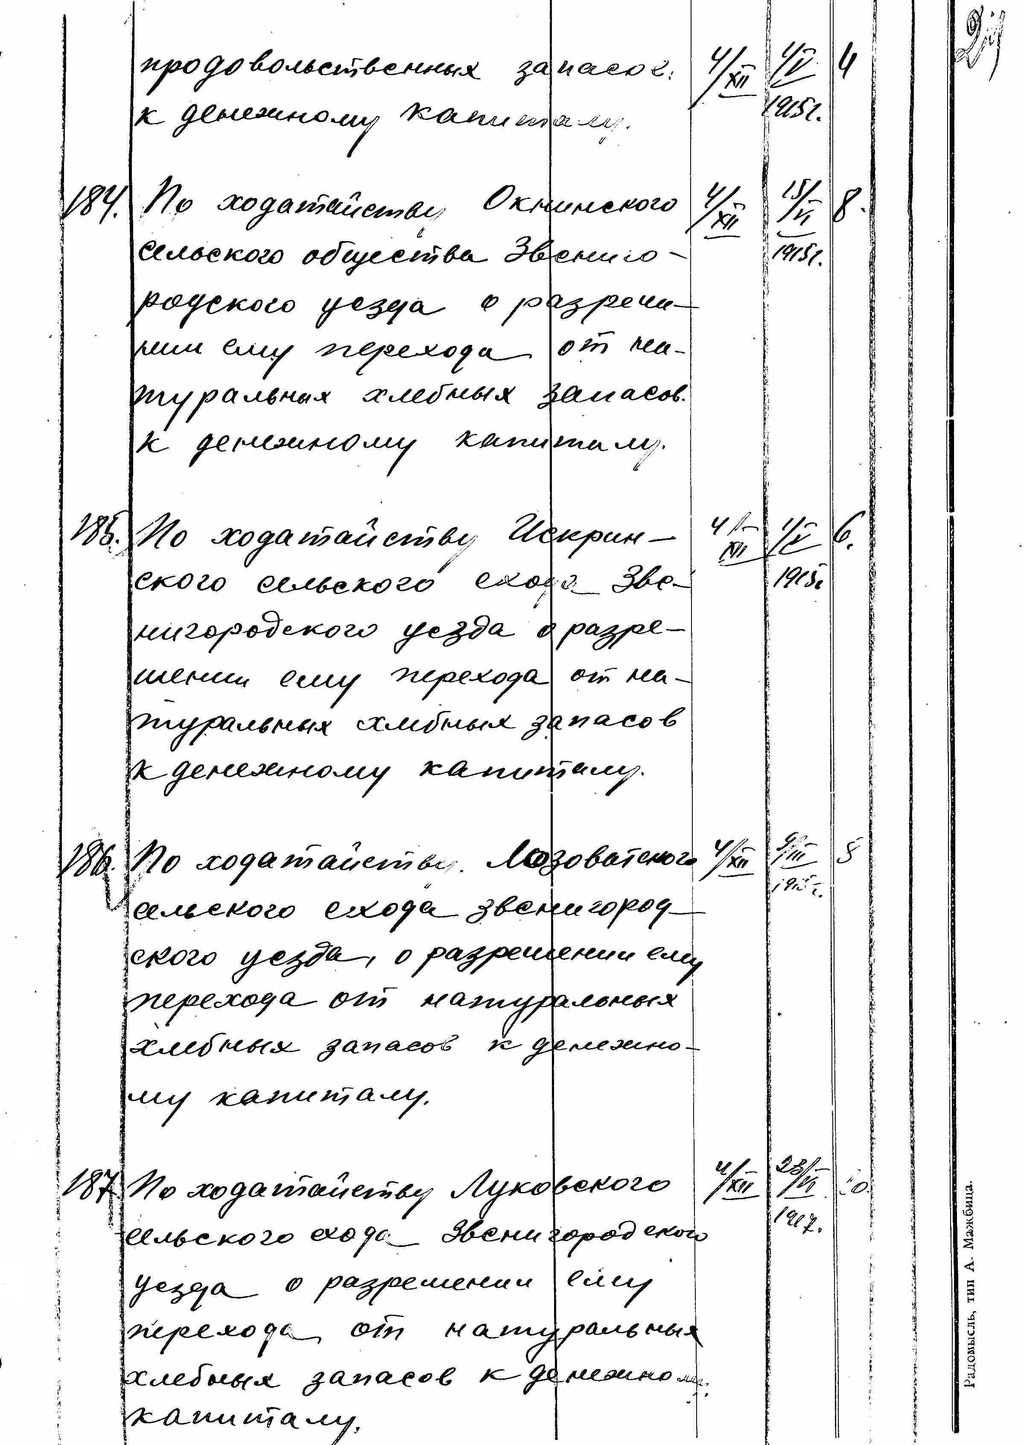 продовольственных запасов. 4/XII 4/V 4
к денежному капиталу. 1915г.
184. По ходатайству Окнинского 4/XII 15/VI 8.
сельского общества Звениго- 1915г.
родского уезда о разреше-
нии ему перехода от на-
туральных хлебных запасов.
к денежному капиталу.
185. По ходатайству Искрин- 4/XII 4/V 6.
ского сельского схода Зве- 1915г
нигородского уезда о разре-
шении ему перехода от на-
туральных хлебных запасов
к денежному капиталу.
186. По ходатайству Лозоватского 4/XII 8
сельского схода звенигород- 1915г.
ского уезда, о разрешении ему
перехода от натуральных
хлебных запасов к денежно-
му капиталу.
187 По ходатайству Луковского 4/XII 23/VI
сельского схода Звенигородского 1917.
уезда о разрешении ему
перехода от натуральных
хлебных запасов к денежному
капиталу.
Радомысль, тип А. Мажбица.